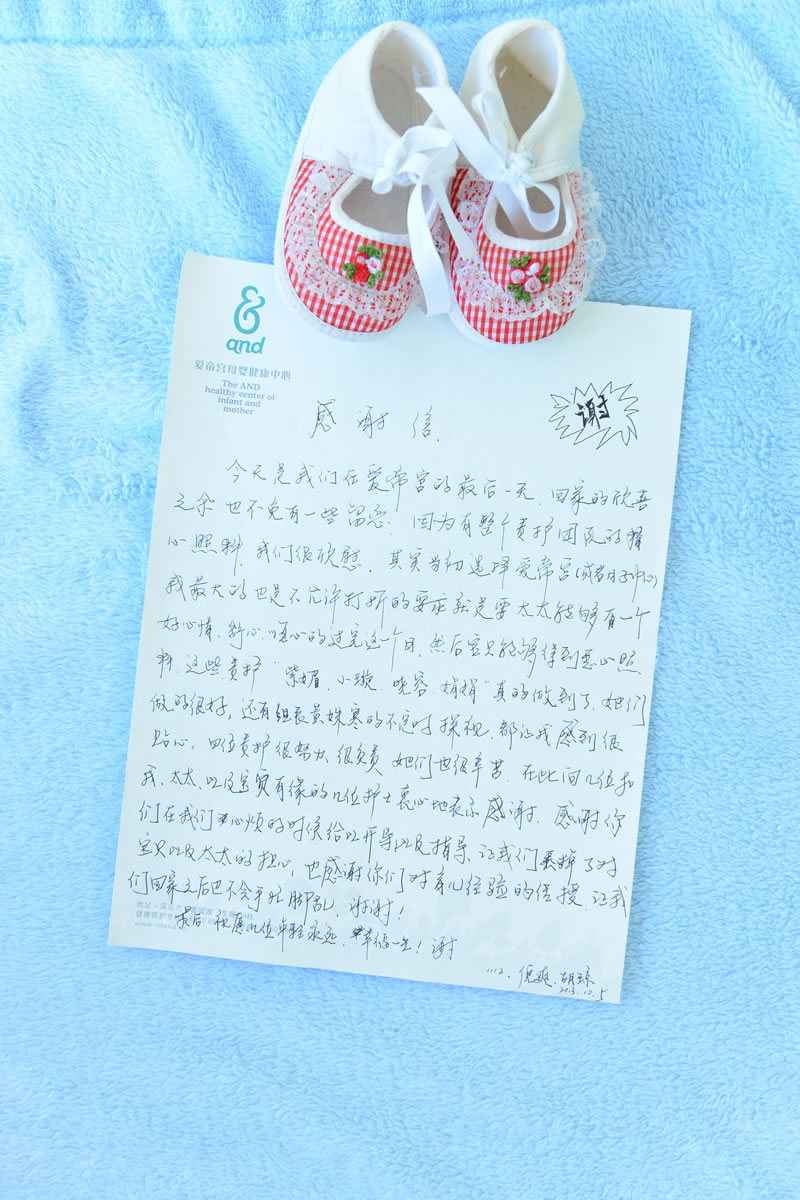 & and
爱帝宫母婴健康中心
The AND
healthy center of
infant and
mother
谢
感谢信
今天是我们在爱帝宫的最后一天，回家的欣喜
之余也不免有一些留恋。因为有整个责护团队的精
心照料，我们很欣慰。其实当初选择爱帝宫(或者月子中心)
我最大的也是不允许打折的要求就是要太太能够有一个
好心情，舒心、顺心的过完这一个月，然后宝贝能够得到悉心照
料，这些责护“紫媚、小璇、晓容、娟娟”真的做到了，她们
做的很好，还有组长黄姝寒的不定时探视，都让我感到很
贴心，四位责护很努力、很负责，她们也很辛苦，在此向几位和
我、太太、以及宝贝有缘的几位护士衷心地表示感谢，感谢你
们在我们心烦的时候给以开导以及指导，让我们丢掉了对
宝贝以及太太的担心，也感谢你们对育儿经验的传授，让我
们回家之后也不会手忙脚乱，谢谢！
最后祝愿几位年轻永远，幸福一生！谢
1112. 倪爽、胡琼
2013.10.5
地址：深圳市
健康呵护专